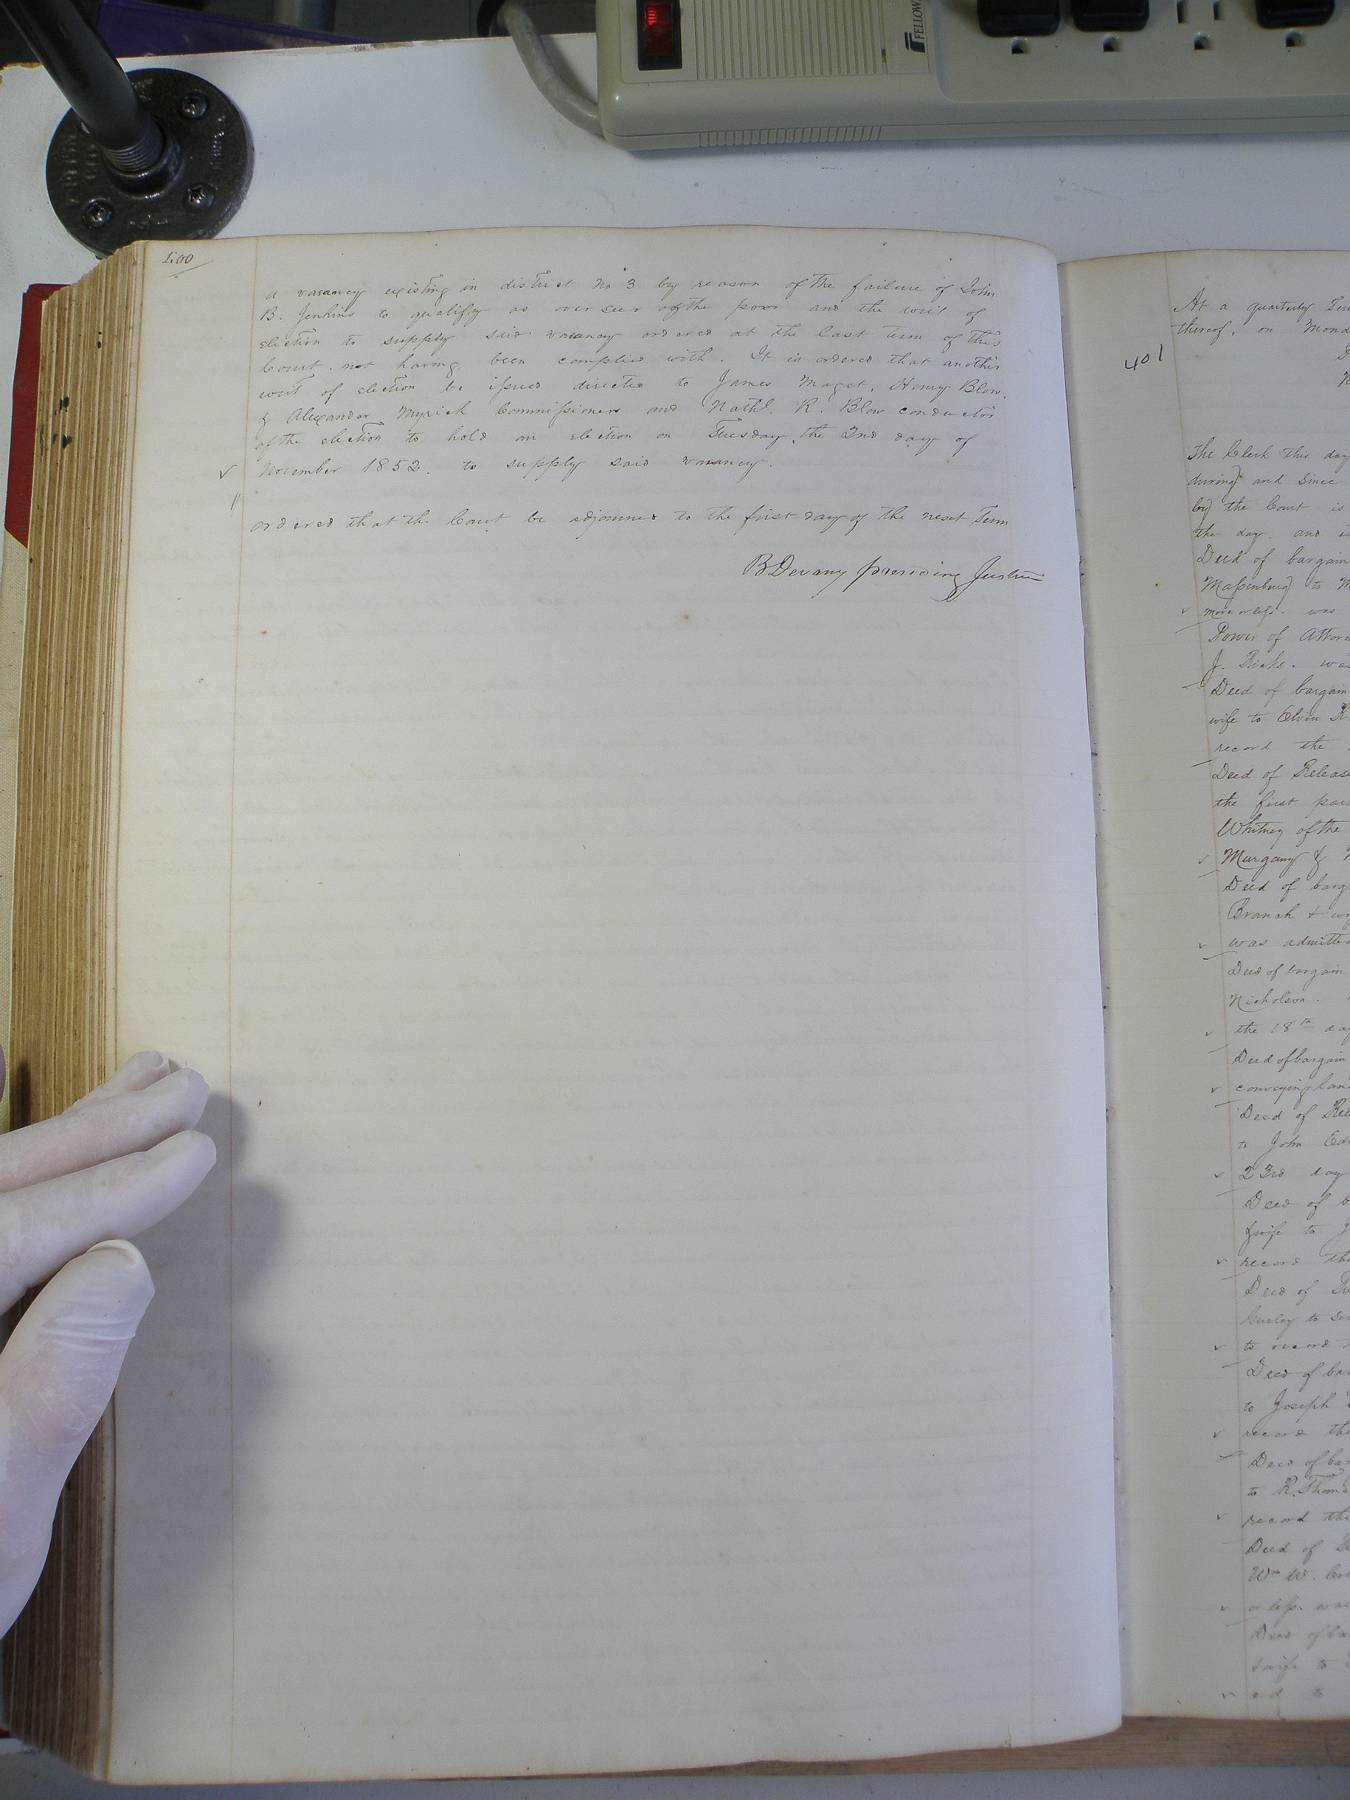 400
a vacancy existing in district No 3 by reason of the failure of John
B. Jenkins to qualify as overseer of the poor and the writ of
election to supply said vacancy ordered at the last term of this
Court. not having been complied with. It is ordered that another
writ of election be issued directed to James Maget, Henry Blow,
& Alexander Myrick Commissioners and Nathl. R. Blow conductor
of the election to hold an election on Tuesday, the 2nd day of
November 1852. to supply said vacancy.
ordered that the Court be adjourned to the first day of the next Term
B Devany presiding Justice
401
At a quarterly
thereof, on
The Clerk this day
during and since
by the Court is
the day. and
Deed of bargain
Massenburg to
more or less. was
Power of
J. Ricks.
Deed of bargain
wife to Elvin R
record the
Deed of Release
the first
Whitney of the
Murgany &
Deed of
Branch &
was admitted
Deed of bargain
Nicholson.
the 18th day
Deed of bargain
conveying
Deed of
to John
23rd day
Deed of
&wife to J
record the
Deed of
Gurley to
to record
Deed of
to Joseph
record the
Deed of
to R. Thomas
record the
Deed of
Wm W.
or less. was
Deed of
&wife to
ed to
FELLOW